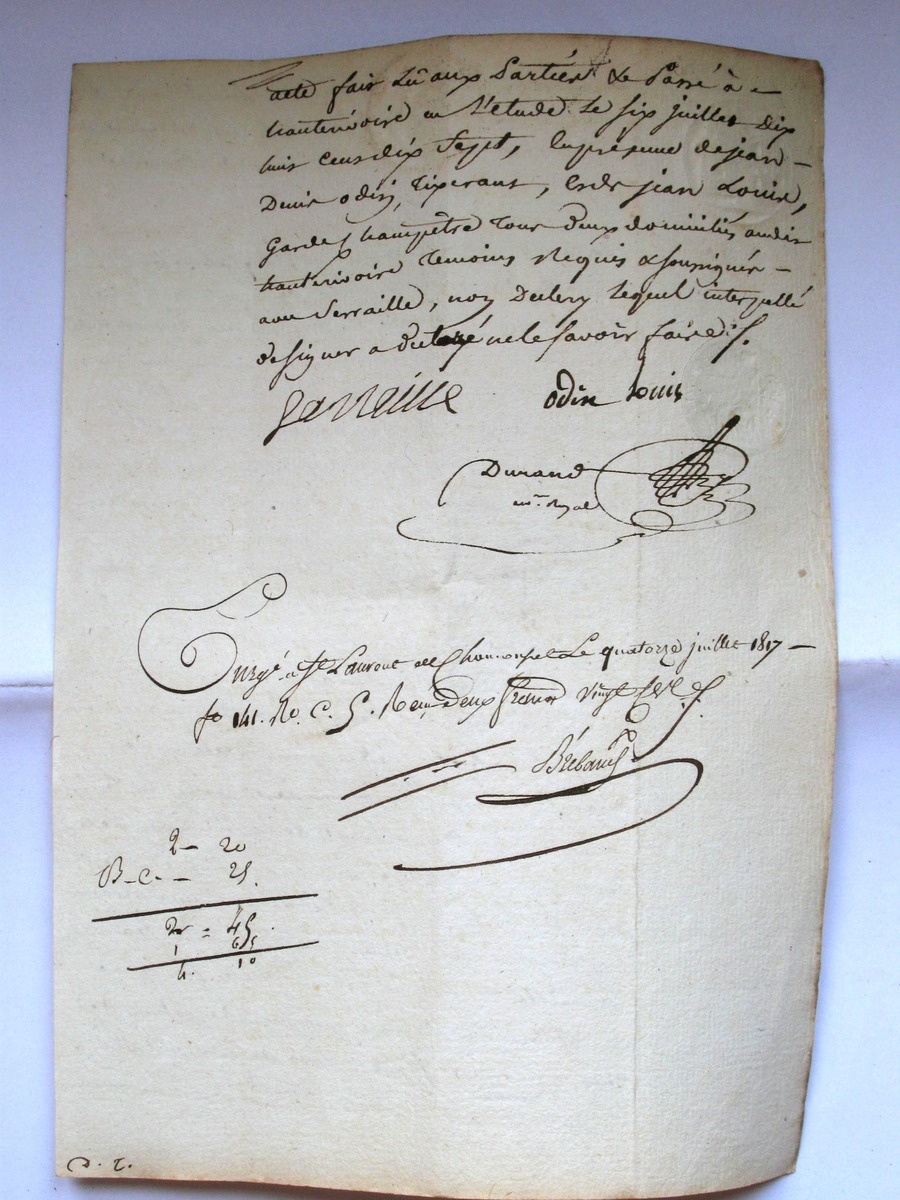 acte fait Lû aux Parties & Passé à –
hauterivoire en L'étude Le six juillet dix
huit cens dix Sept, En présence de jean –
Denis odin, Tixerant, Et de jean Louis,
Garde Champêtre Tous deux domiciliés audit
hauterivoire Temoins Requis & soussignés –
avec Serraille, non Lequel interpellé
de signer a declaré ne le savoir faire
Serraille odin Louis
Durand
not. Royal
Enrgé à St Laurent de Chamousset Le quatorze juillet 1817 –
fo 141. Ro. C. 5. Reçu deux francs vingt Cent
2 – 20
B – C. – 25.
2 = 45.
1 65
4. 10
D. T.